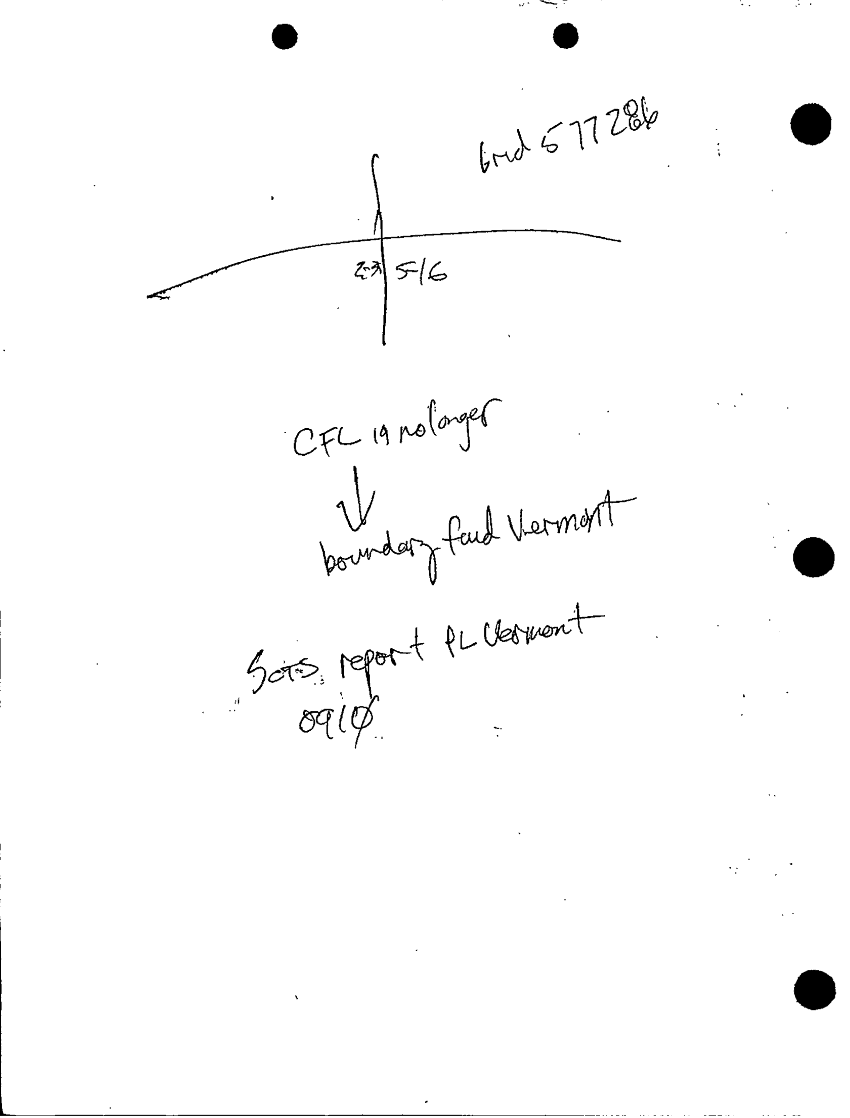 Grid 577286
2-3 5-16
CFL 19 no longer
boundary Vermont
report PL Vermont
0910